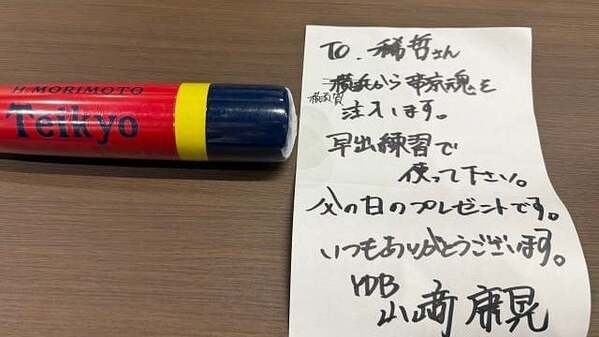 H. MORIMOTO
Teikyo
TO. 稀哲さん
横浜から帝京魂を
横須賀
注入します。
早出練習で
使って下さい。
父の日のプレゼントです。
いつもありがとうございます。
YDB
山﨑 康晃